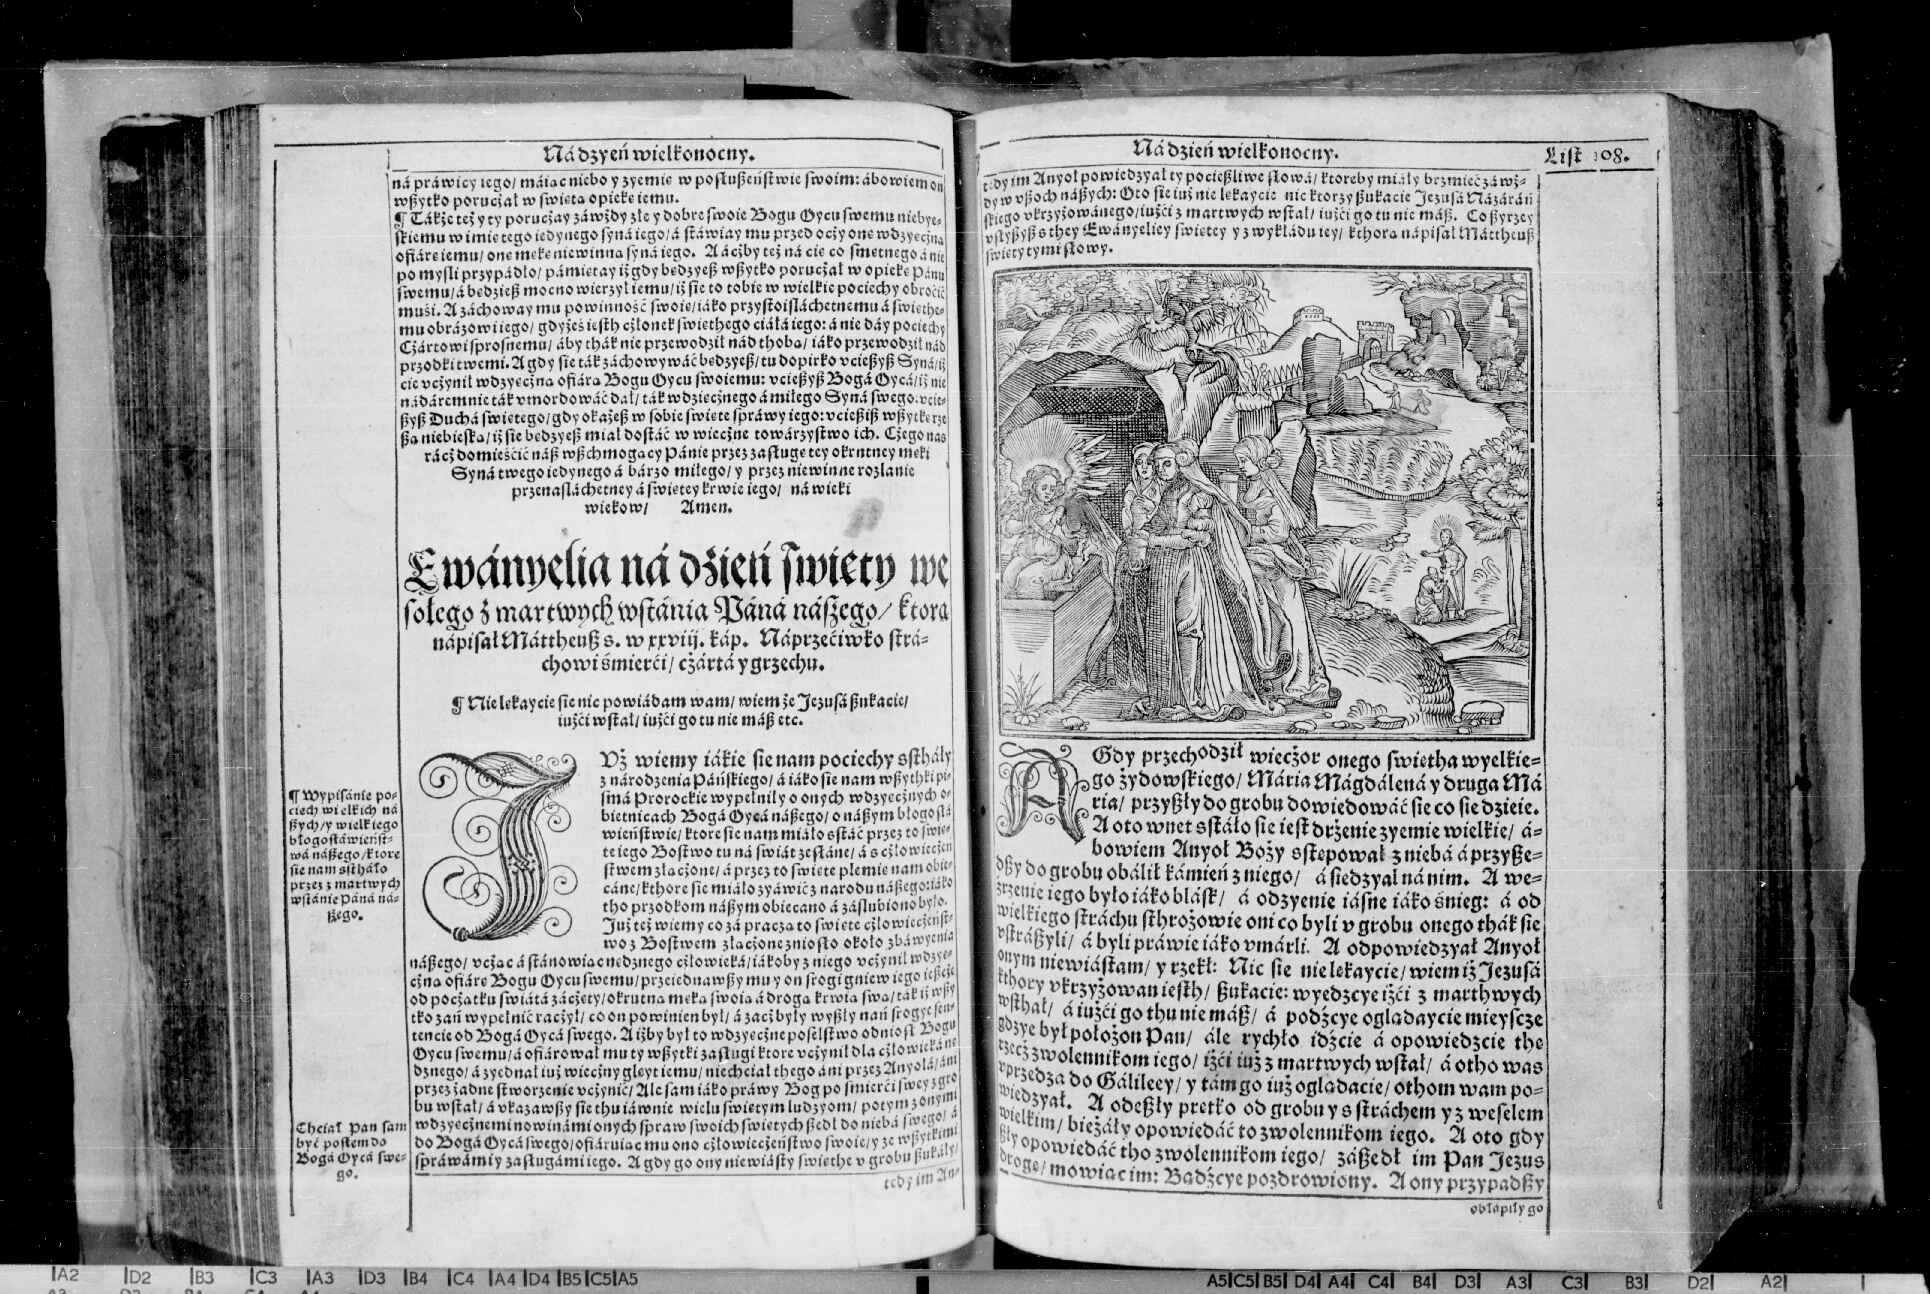 Ná dzyeń wielkonocny.
ná práwicy iego/ máiac niebo y zyemie w posłußeństwie swoim: ábowiem on
wßytko poruczał w swieta opieke iemu.
¶ Tákże też y ty poruczay záwżdy złe y dobre swoie Bogu Oycu swemu niebye-
skiemu w imie tego iedynego syná iego/ á stáwiay mu przed oczy one wdzyeczna
ofiáre iemu/ one meke niewinna syná iego. A áczby też ná cie co smetnego á nie
po mysli przypádło/ pámietay iż gdy bedzyeß wßytko poruczał w opieke Pánu
swemu/ á bedzieß mocno wierzył iemu/ iż sie to tobie w wielkie pociechy obroćić
muśi. A záchoway mu powinność swoie/ iáko przystoi sláchetnemu á swiethe-
mu obrázowi iego/ gdyżeś iesth członek swiethego ciáłá iego: á nie dáy pociechy
Czártowi sprosnemu/ áby thák nie przewodził nád thoba/ iáko przewodził nád
przodki twemi. A gdy sie ták záchowywáć bedzyeß/ tu dopirko vcießyß Syná/ iż
cie vczynił wdzyeczna ofiára Bogu Oycu swoiemu: vcießyß Bogá Oycá/ iż nie
nádáremnie ták vmordowáć dał/ ták wdziecznego á miłego Syná swego: vcie-
ßyß Duchá swietego/ gdy okażeß w sobie swiete spráwy iego: vcießiß wßytke rze
ßa niebieska/ iż sie bedzyeß miał dostáć w wieczne towárzystwo ich. Czego nas
rácz domieśćić náß wßchmogacy Pánie przez zasługe tey okrutney meki
Syná twego iedynego á bárzo miłego/ y przez niewinne rozlanie
przenaslachetney á swietey krwie iego/ ná wieki
wiekow/ Amen.
Ewányelia ná dzień swięty we
sołego z martwych wstánia Páná nászego/ ktora
nápisał Máttheuß s. w xxviij. káp. Náprzećiwko strá-
chowi śmierći/ czártá y grzechu.
¶ Nie lekaycie sie nic powiádam wam/ wiem że Jezusá ßukacie/
iużći wstał/ iużći go tu nie máß etc.
JVż wiemy iákie sie nam pociechy ssthały
z národzenia Páńskiego/ á iáko sie nam wßythki pi-
smá Prorockie wypełniły o onych wdzyecznych o-
bietnicach Bogá Oycá náßego/ o náßym błogosłá
wieństwie/ ktore sie nam miáło sstáć przez to świe-
te iego Bostwo tu ná świát zesłáne/ á s człowieczeń
stwem złaczone/ á przez to swiete plemie nam obie-
cáne/ kthore sie miáło zyáwić z narodu náßego: iáko
tho przodkom náßym obiecano á záslubiono było.
Już też wiemy co zá praca to swiete człowieczeńst-
wo z Bostwem złaczone zniosło około zbáwyenia
¶ Wypisánie po-
ciech wielkich ná
ßych/ y wielkiego
błogosłáwieńst-
wá náßego/ ktore
sie nam sstháło
przez z martwych
wstánie Páná ná-
ßego.
náßego/ vczac á stánowiac nedznego człowieká/ iákoby z niego vczynił wdzye-
czna ofiáre Bogu Oycu swemu/ przeiednawßy mu y on srogi gniew iego ießcze
od poczatku swiátá záczety/ okrutna meka swoia á droga krwia swa/ ták iż wßy
tko zań wypełnić raczył/ co on powinien był/ á zacz były wyßły nań srogye sen-
tencie od Bogá Oycá swego. A iżby był to wdzyeczne poselstwo odniosł Bogu
Oycu swemu/ á ofiárował mu ty wßytki zasługi ktore vczynił dla człowieká ne
dznego/ á zyednał iuż wieczny gleyt iemu/ niechciał thego áni przez Anyołá/ áni
przez żadne stworzenie vczynić/ Ale sam iáko práwy Bog po smierći swey z gro
bu wstał/ á vkazawßy sie thu iáwnie wielu swietym ludzyom/ potym z onymi
wdzyecznemi nowinámi onych spraw swoich swietych ßedł do niebá swego/ á
do Bogá Oycá swego/ ofiáruiac mu ono człowieczeństwo swoie/ y ze wßytkimi
spráwámi y zasługámi iego. A gdy go ony niewiásty swiethe v grobu ßukáły/
Chciał Pan sam
być posłem do
Bogá Oycá swe-
go.
tedy im An-
Ná dzień wielkonocny.
List 108.
tedy im Anyoł powiedzyał ty pocießliwe słowá/ ktoreby miáły brzmieć záwż-
dy w vßoch náßych: Oto sie iuż nie lekaycie nic ktorzy ßukacie Jezusá Názárań
skiego vkrzyżowánego/ iużći z martwych wstał/ iużći go tu nie máß. Co ßyrzey
vsłyßyß s they Ewányeliey swietey y z wykládu iey/ kthora nápisał Máttheuß
swiety tymi słowy.
A Gdy przechodził wieczor onego swiethá wyelkie-
go żydowskiego/ Mária Mágdálená y druga Má
ria/ przyßły do grobu dowiedowáć sie co sie dzieie.
A oto wnet sstáło sie iest drżenie zyemie wielkie/ á-
bowiem Anyoł Boży sstepował z niebá á przyße-
dßy do grobu obálił kámień z niego/ á siedzyał ná nim. A we-
źrzenie iego było iáko blásk/ á odzyenie iásne iáko śnieg: á od
wielkiego stráchu sthrożowie oni co byli v grobu onego thák sie
vstráßyli/ á byli práwie iáko vmárli. A odpowiedzyał Anyoł
onym niewiástam/ y rzekł: Nic sie nie lekaycie/ wiem iż Jezusá
kthory vkrzyżowan iesth/ ßukacie: wyedzcye iżći z marthwych
wsthał/ á iużći go thu nie máß/ á podźcye ogladaycie mieyscze
gdzye był położon Pan/ ále rychło idźcie á opowiedzcie the
rzecż zwolennikom iego/ iżći iuż z martwych wstał/ á otho was
vprzedza do Gálileey/ y tám go iuż ogladacie/ othom wam po-
wiedzyał. A odeßły pretko od grobu y s stráchem y z weselem
wielkim/ bieżáły opowiedáć to zwolennikom iego. A oto gdy
ßły opowiedáć tho zwolennikom iego/ záßedł im Pan Jezus
droge/ mowiac im: Badźcye pozdrowiony. A ony przypadßy
obłápiły go
A2 D2 B3 C3 A3 D3 B4 C4 A4 D4 B5 C5 A5
A5 C5 B5 D4 A4 C4 B4 D3 A3 C3 B3 D2 A2